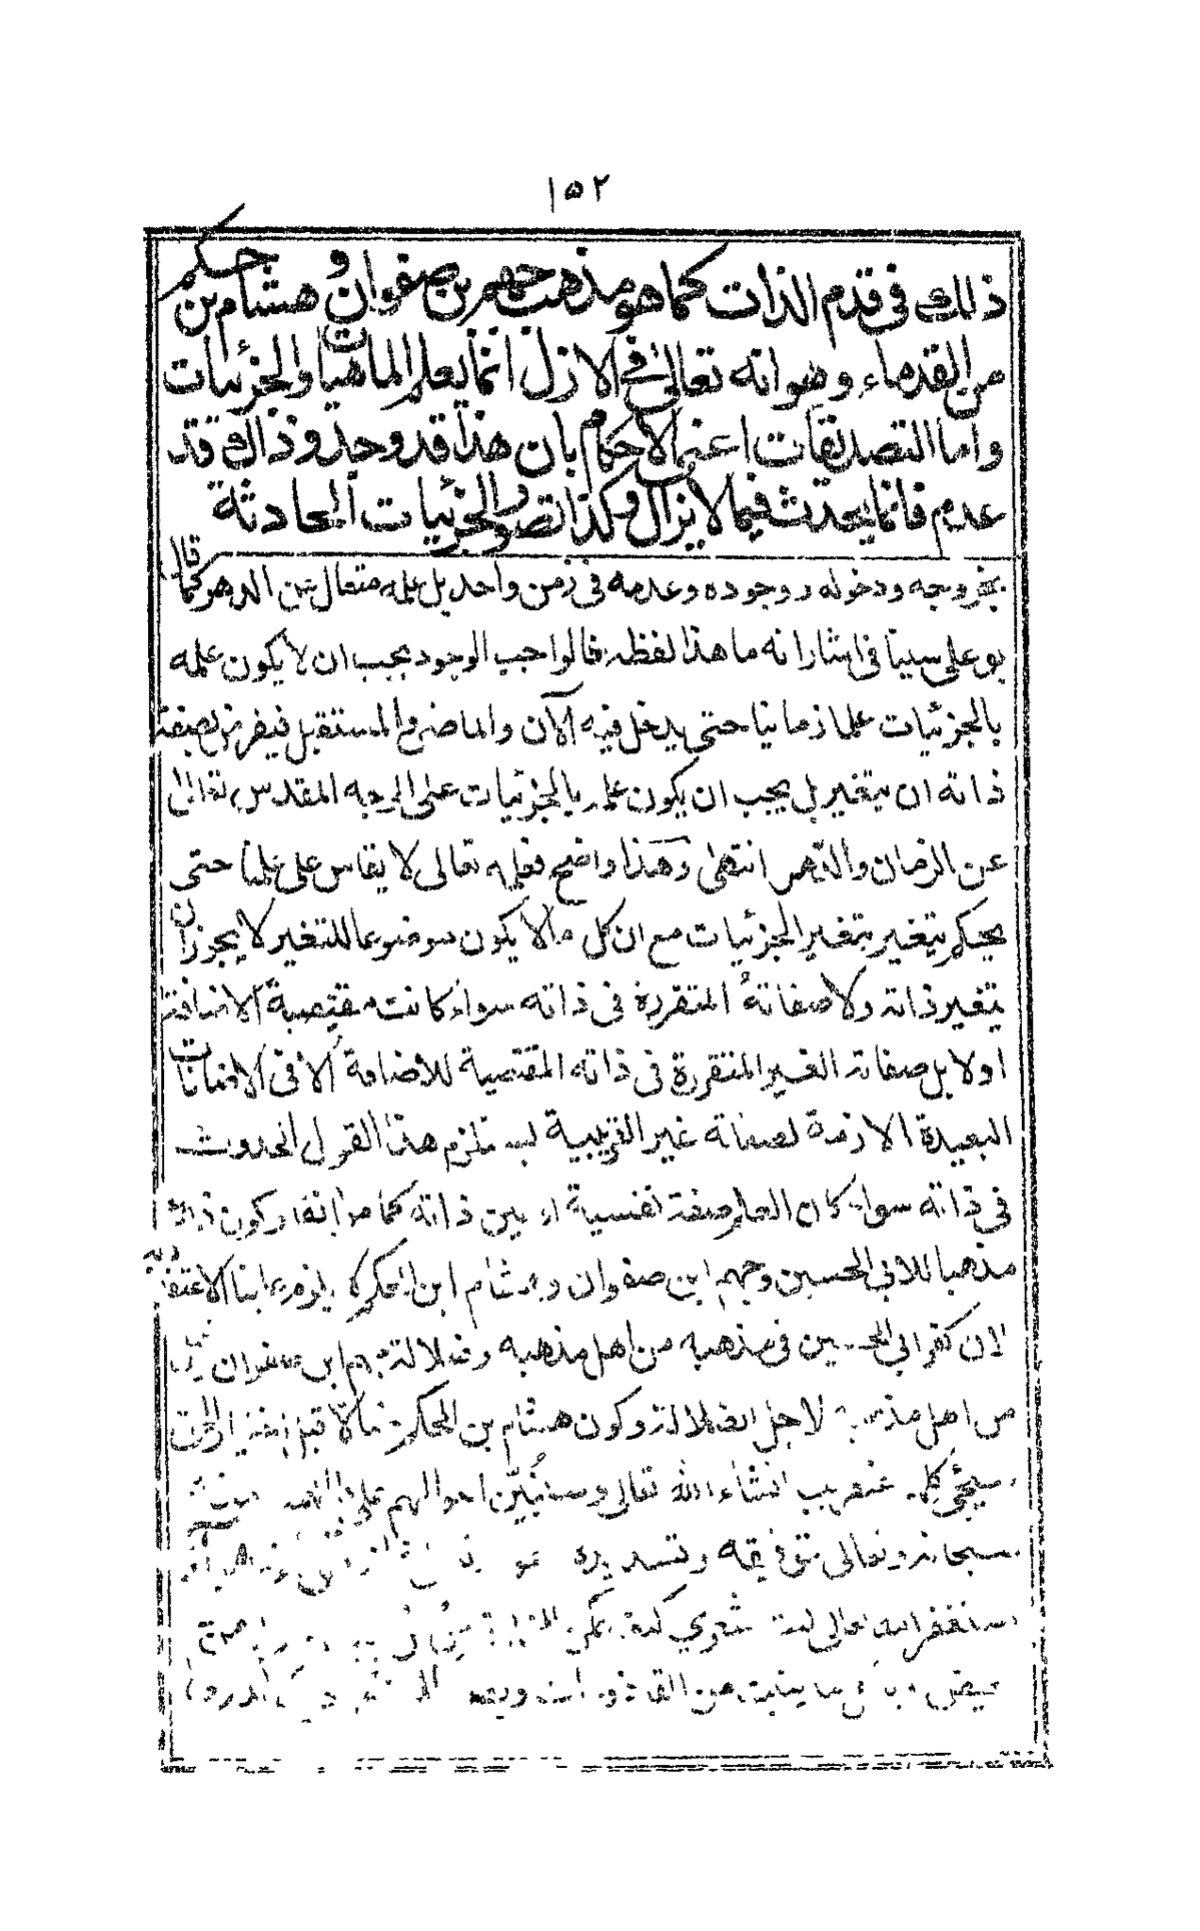 ١٥٢
ذلك في قدم الذات كما هو مذهب جهم بن صفوان و هشام بن حكم
من القدماء وهو انه تعالى في الازل انما يعلم الماهيات والجزئيات
واما التصديقات اعنى الاحكام بان هذا قد وجد و ذالك قد
عدم فانما يحدث فيما لا يزال وكذا تصور الجزئيات الحادثة
بخروجه ودخوله ووجوده وعدمه في زمن واحد بل علمه متعال عن الدهر كما قال
بو على سينا في اشاراته ما هذا لفظه فالواجب الوجود يجب ان لا يكون علمه
بالجزئيات علما زمانيا حتى يدخل فيه الآن والماضي والمستقبل فيعرض لصفة
ذاته ان يتغير بل يجب ان يكون علمه بالجزئيات على الوجه المقدس تعالى
عن الزمان والدهر انتهى وهذا واضح فعلمه تعالى لا يقاس على علمنا حتى
يحكم بتغير بتغير الجزئيات مع ان كل ما لا يكون موضوعا للتغير لا يجوز ان
يتغير ذاته ولا صفاته المتقررة في ذاته سواء كانت مقتضية الاضافة
اولا بل صفاته الغير المتقررة في ذاته المقتضية للاضافة الا في الاضافات
البعيدة الازمة لصفاته غير القريبية ليستلزم هذا القول الحدوث
في ذاته سواء كان العلم صفة نفسية او عين ذاته كما مر انفا وكون ذلك
مذهبا للابي الحسين وجهم ابن صفوان وهشام ابن الحكم لا يلزم علينا الاعتقاد به
لان كفر ابي الحسين في مذهبه من اهل مذهبه وضلالة جهم ابن صفوان
من اهل مذهبه لاجل الضلالة وكون هشام بن الحكم
سيجئ كله عنقريب انشاء الله تعالى وسنبين احوالهم على
سبحانه وتعالى بتوفيقه وتسديده
استغفر الله تعالى ليت شعري كيف يمكن
من القاذورات وبعد